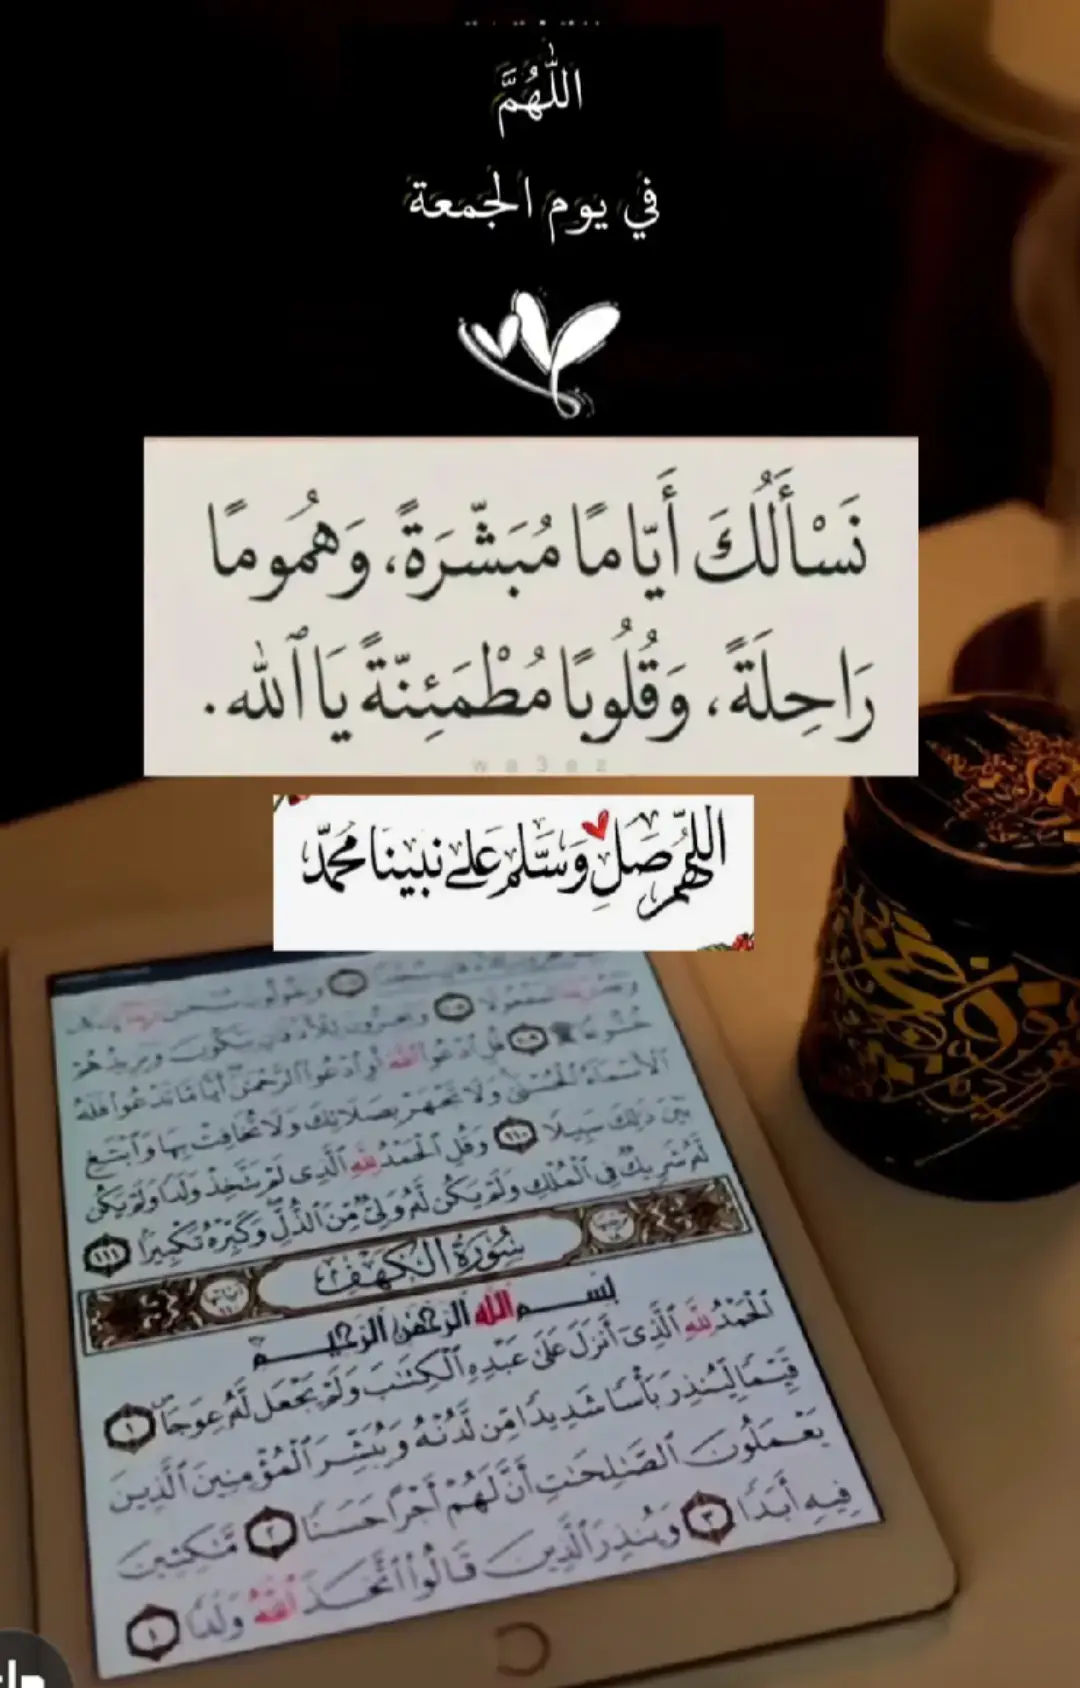 اللَّهُمَّ
في يوم الجمعة
نَسْأَلُكَ أَيّامًا مُبَشّرَةً، وَهُمُومًا
رَاحِلَةً، وَقُلُوبًا مُطْمَئِنّةً يَا ٱللّٰه.
wa3ez
اللّهُمَّ صَلِ وَسَّلِم عَلى نبينا محمّد
قُلِ ادْعُوا اللَّهَ أَوِ ادْعُوا الرَّحْمَنَ أَيًّا مَّا تَدْعُوا فَلَهُ
الأَسْمَاءُ الْحُسْنَى وَلَا تَجْهَرْ بِصَلَاتِكَ وَلَا تُخَافِتْ بِهَا وَابْتَغِ
بَيْنَ ذَلِكَ سَبِيلًا ١١٠ وَقُلِ الْحَمْدُ لِلَّهِ الَّذِي لَمْ يَتَّخِذْ وَلَدًا وَلَمْ يَكُن
لَّهُ شَرِيكٌ فِي الْمُلْكِ وَلَمْ يَكُن لَّهُ وَلِيٌّ مِّنَ الذُّلِّ وَكَبِّرْهُ تَكْبِيرًا ١١١
سُورَةُ الكَهْفِ
بِسْمِ اللَّهِ الرَّحْمَنِ الرَّحِيمِ
الْحَمْدُ لِلَّهِ الَّذِي أَنزَلَ عَلَى عَبْدِهِ الْكِتَٰبَ وَلَمْ يَجْعَل لَّهُ عِوَجَا ١
قَيِّمًا لِّيُنذِرَ بَأْسًا شَدِيدًا مِّن لَّدُنْهُ وَيُبَشِّرَ الْمُؤْمِنِينَ الَّذِينَ
يَعْمَلُونَ الصَّٰلِحَٰتِ أَنَّ لَهُمْ أَجْرًا حَسَنًا ٢ مَّٰكِثِينَ
فِيهِ أَبَدًا ٣ وَيُنذِرَ الَّذِينَ قَالُوا اتَّخَذَ اللَّهُ وَلَدًا ٤